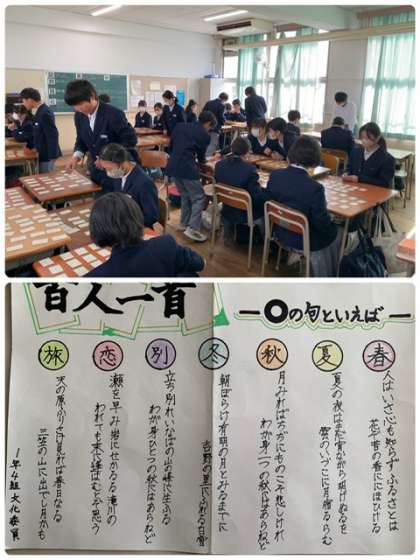 百人一首
一〇の句といえば一
春
人はいさ心も知らずふるさとは
花ぞ昔の香ににほひける
夏
夏の夜はまだ宵ながら明けぬるを
雲のいづこに月宿るらむ
秋
月みればちぢにものこそ悲しけれ
わが身一つの秋にはあらねど
冬
朝ぼらけ有明の月とみるまでに
吉野の里にふれる白雪
別
立ち別れいなばの山の峰に生ふる
わが身ひとつの秋にはあらねど
恋
瀬を早み岩にせかるる滝川の
われても末に逢はむとぞ思う
旅
天の原ふりさけ見れば春日なる
三笠の山に出でし月かも
1年4組文化委員